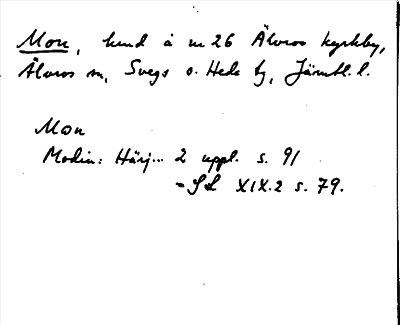 Mon, hemd å nr 26 Älvros kyrkby,
Älvros sn, Svegs o. Hede tg, Jämtl. l.
Mon
Modin: Härj... 2 uppl. s. 91
= SL XIX.2 s. 79.